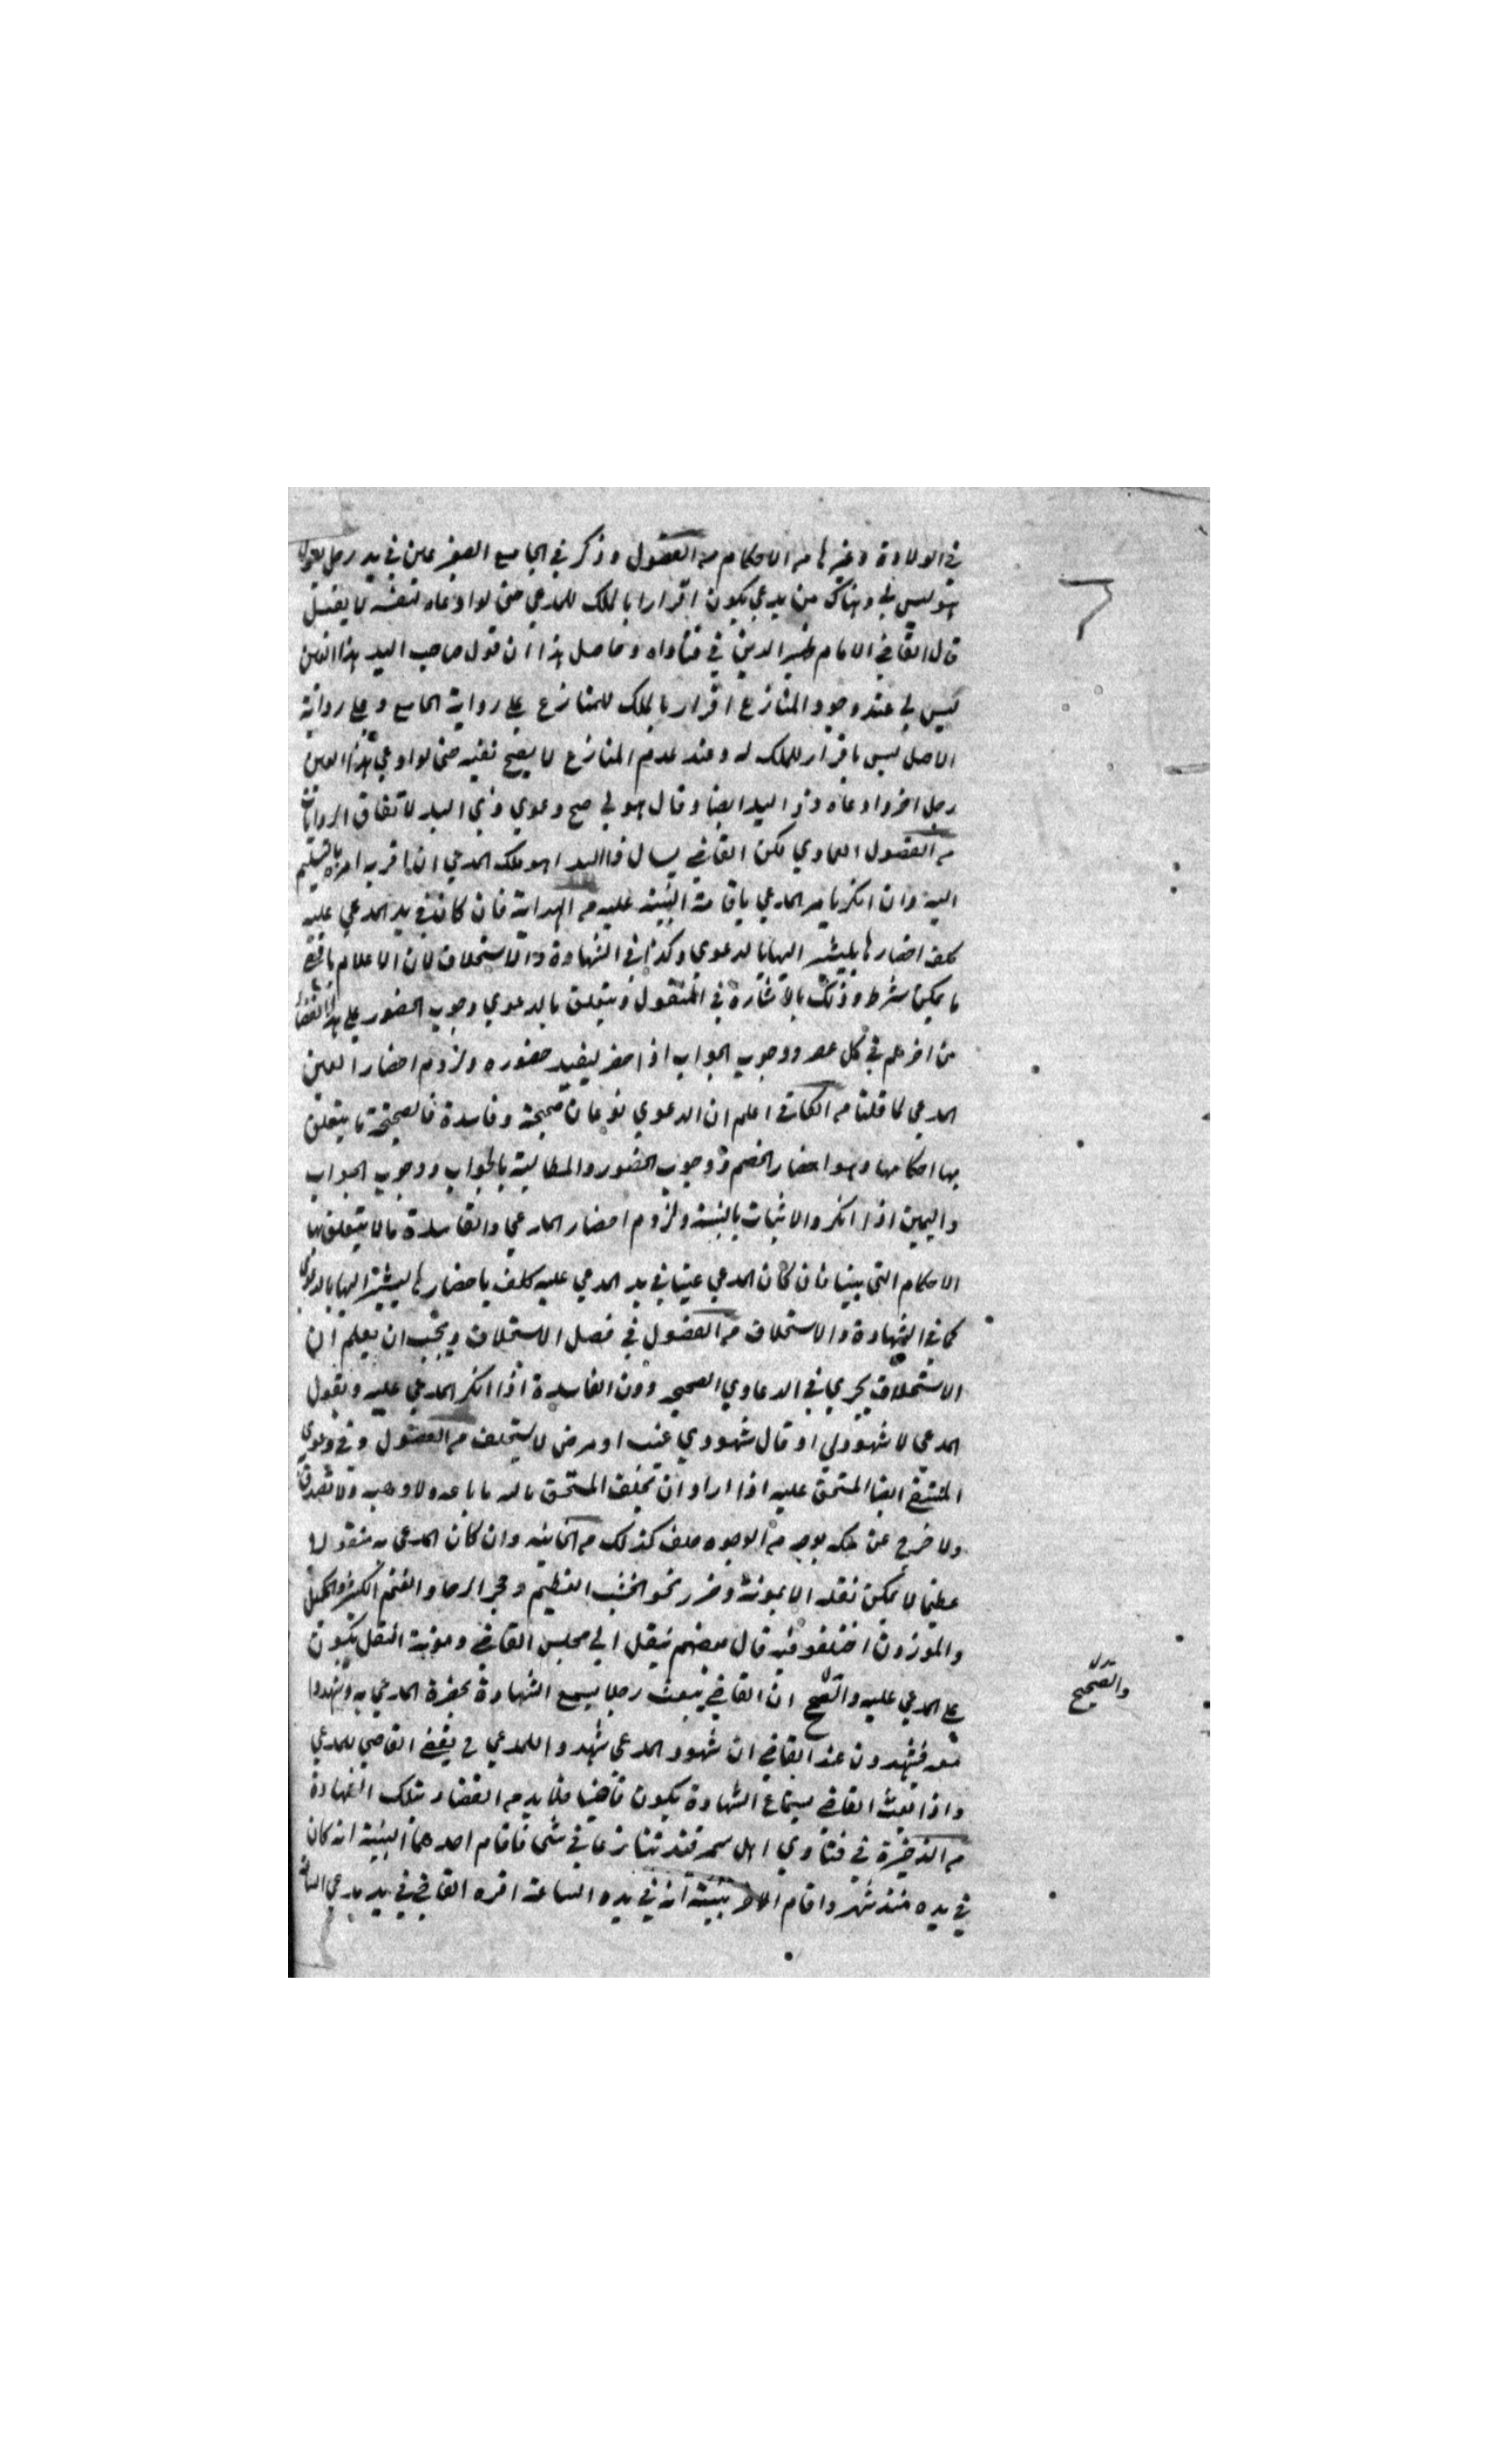 في الولادة وغيرها من الاحكام من الفصول وذكر في الجامع الصغير عين في يد رجل يقول
هو ليس لي وهناك من يدعي يكون اقرارا بالملك للمدعي حتى لو ادعاه لنفسه لا يقبل
قال القاضي الامام ظهير الدين في فتاواه وحاصل هذا ان قول صاحب اليد هذا العين
ليس لي عند وجود المنازع اقرار بالملك للمنازع على رواية الجامع وعلى رواية
الاصل ليس باقرار للملك له وعند عدم المنازع لا يصح نفيه حتى لو ادعي هذا العين
رجل اخر وادعاه ذو اليد ايضا وقال هو لي صح دعوي ذي اليد لاتفاق الروايات
من الفصول العمادي لكن القاضي يسال ذا اليد اهو ملك المدعي ان اقر به امره بالتسليم
اليه وان انكر يامر المدعي باقامة البينة عليه من الهداية فان كان في يد المدعي عليه
كلف احضارها ليشير اليها بالدعوي وكذا في الشهادة والاستحلاف لان الاعلام باقصى
ما يمكن شرط وذلك بالاشارة في المنقول ويتعلق بالدعوي وجوب الحضور على هذا القضاة
من اخرهم في كل عصر ووجوب الجواب اذا حضر ليفيد حضوره ولزوم احضار العين
المدعي لما قلنا من الكافي اعلم ان الدعوي نوعان صحيحة وفاسدة فالصحيحة ما يتعلق
بها احكامها وهو احضار الخصم ووجوب الحضور والمطالبة بالجواب ووجوب الجواب
واليمين اذا انكر والاثبات بالبينة ولزوم احضار المدعي والفاسدة ما لا يتعلق بها
الاحكام التي بينا فان كان المدعي عينا في يد المدعي عليه كلف باحضارها ليشير اليها بالدعوي
كما في الشهادة والاستحلاف من الفصول في فصل الاستحلاف ويجب ان يعلم ان
الاستحلاف يجري في الدعاوي الصحيحة دون الفاسدة اذا انكر المدعي عليه ويقول
المدعي لا شهود لي او قال شهودي غيب او مرض لا يستحلف من الفصول وفي دعوي
ايضا المستحق عليه اذا اراد ان يحلف المستحق بالله ما باعه ولا وهبه ولا تصدق
ولا خرج عن ملكه بوجه من الوجوه حلف كذلك من الخانيه وان كان المدعي به منقولا
عظيما لا يمكن نقله الا بمونة وضرر نحو الخشب العظيم وحجر الرحا والغنم الكثير والمكيل
والموزون اختلفوا فيه قال بعضهم ينقل الي مجلس القاضي ومؤنة النقل يكون
على المدعي عليه والصحيح ان القاضي يبعث رجلا يسمع الشهادة بحضرة المدعي به ويشهدوا
معه فيشهدون عند القاضي ان شهود المدعي شهدوا للمدعي ثم يقضي القاضي للمدعي
واذا بعث القاضي لسماع الشهادة يكون قاضيا فلا بد من القضاء بتلك الشهادة
من الذخيرة في فتاوي اهل سمرقند تنازعا في شئ فاقام احدهما البينة انه كان
في يده منذ شهر واقام الاخر بينة انه في يده الساعة اقره القاضي في يد مدعي الساعة
والصحيح